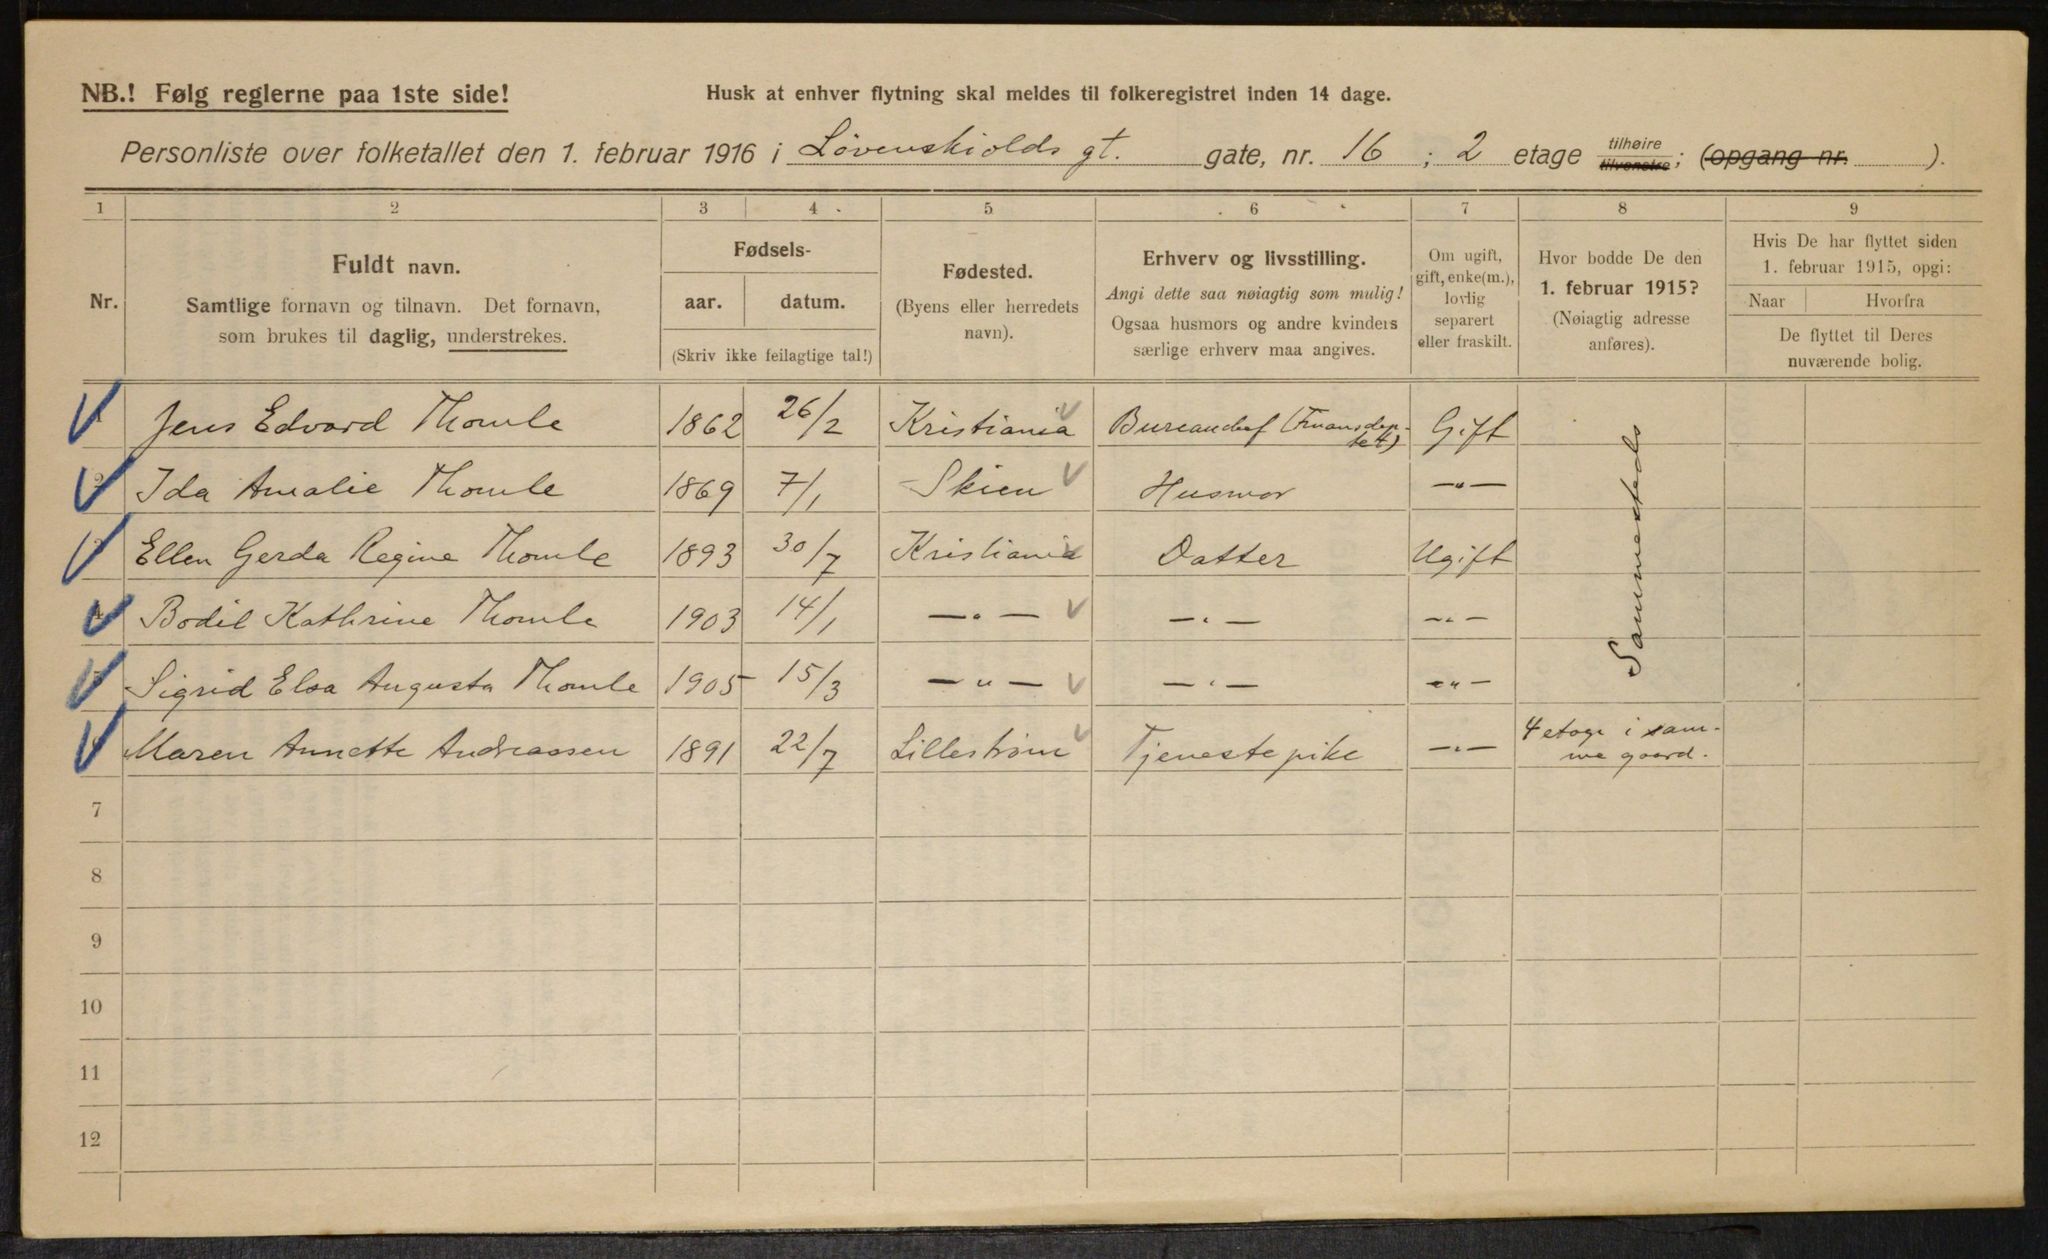 NB.! Følg reglerne paa 1ste side!
Husk at enhver flytning skal meldes til folkeregistret inden 14 dage.
Personliste over folketallet den 1. februar 1916 i Løvenskiolds gt. gate, nr. 16 ; 2 etage tilhøire tilvenstre ; (opgang nr. ).
1 2 3 4 5 6 7 8 9
Nr.
Fuldt navn.
Samtlige fornavn og tilnavn. Det fornavn,
som brukes til daglig, understrekes.
Fødsels-
aar. datum.
(Skriv ikke feilagtige tal!)
Fødested.
(Byens eller herredets
navn).
Erhverv og livsstilling.
Angi dette saa nøiagtig som mulig!
Ogsaa husmors og andre kvinders
særlige erhverv maa angives.
Om ugift,
gift, enke(m.),
lovlig
separert
eller fraskilt.
Hvor bodde De den
1. februar 1915?
(Nøiagtig adresse
anføres).
Hvis De har flyttet siden
1. februar 1915, opgi:
Naar Hvorfra
De flyttet til Deres
nuværende bolig.
1 Jens Edvard Thomle 1862 26/2 Kristiania Bureauchef (Finansdep-
tet) Gift
2 Ida Amalie Thomle 1869 7/1 Skien Husmor —"—
3 Ellen Gerda Regine Thomle 1893 30/7 Kristiania Datter Ugift
4 Bodil Kathrine Thomle 1903 14/1 —"— —"— —"—
5 Sigrid Elsa Augusta Thomle 1905 15/3 —"— —"— —"—
Sammesteds
6 Maren Annette Andreassen 1891 22/7 Lillestrøm Tjenestepike —"— 4 etage i sam-
me gaard.
7
8
9
10
11
12